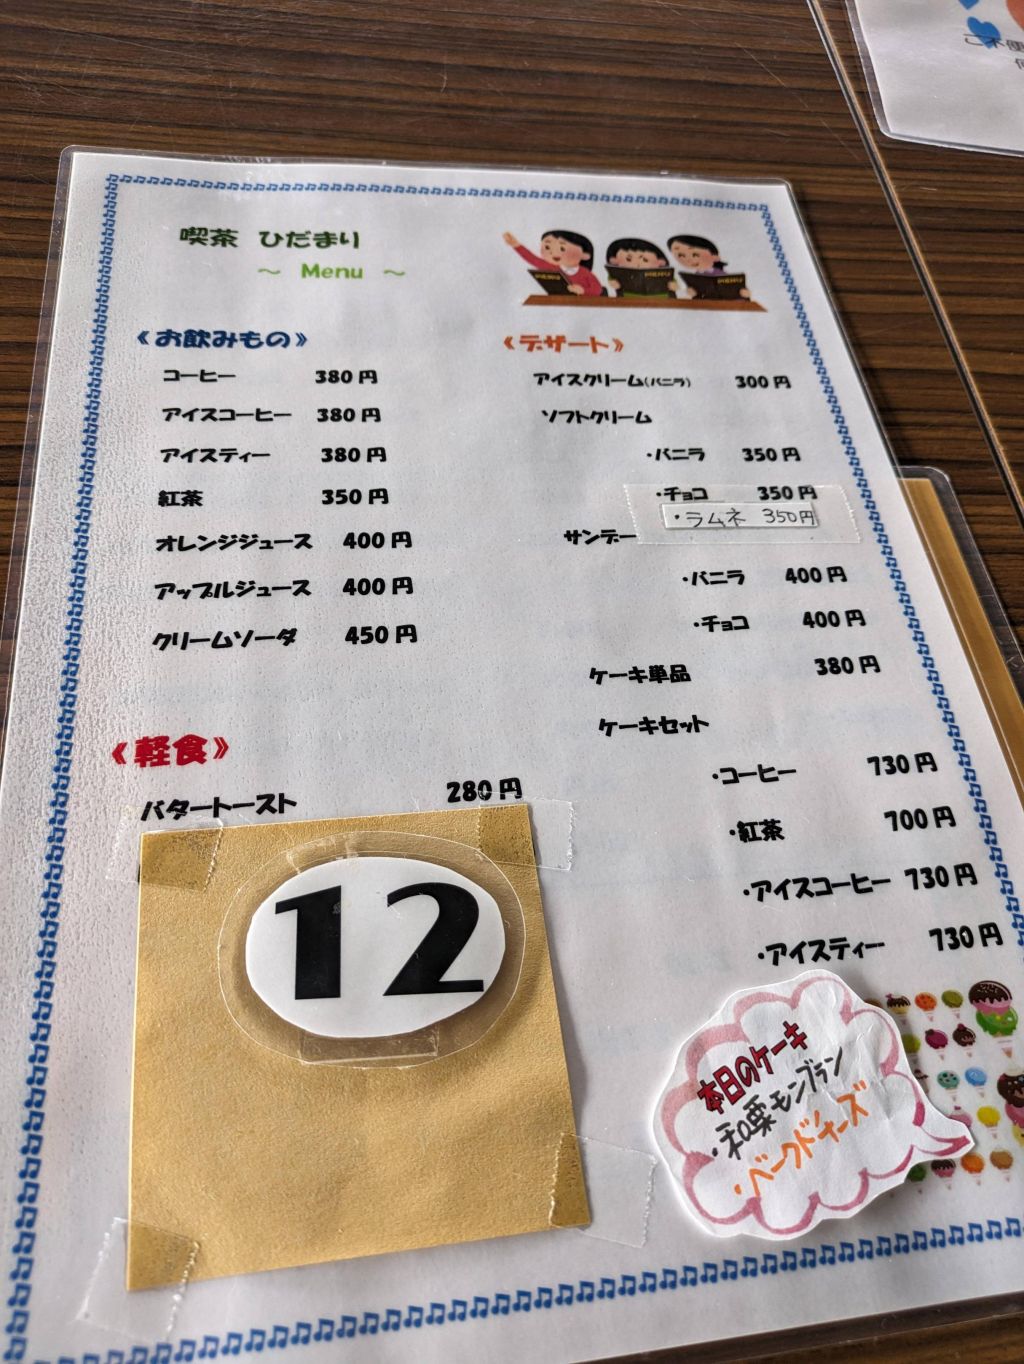 喫茶 ひだまり
～ Menu ～
《お飲みもの》
コーヒー 380円
アイスコーヒー 380円
アイスティー 380円
紅茶 350円
オレンジジュース 400円
アップルジュース 400円
クリームソーダ 450円
《軽食》
バタートースト 280円
12
MENU
MENU
MENU
《デザート》
アイスクリーム(バニラ) 300円
ソフトクリーム
・バニラ 350円
・チョコ 350円
・ラムネ 350円
サンデー
・バニラ 400円
・チョコ 400円
ケーキ単品 380円
ケーキセット
・コーヒー 730円
・紅茶 700円
・アイスコーヒー 730円
・アイスティー 730円
本日のケーキ
・和栗モンブラン
・ベークドチーズ
ご不便